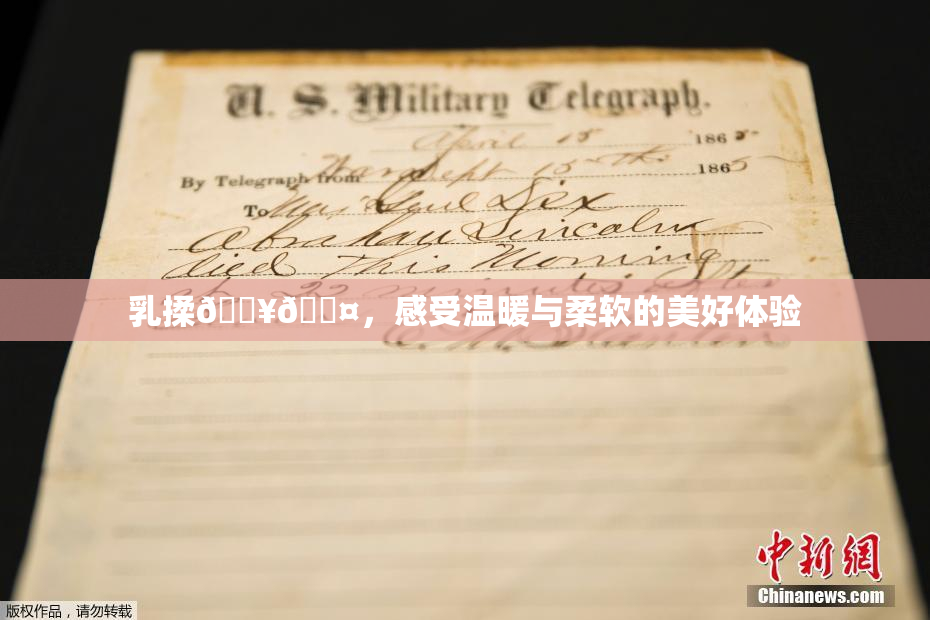 U. S. Military Telegraph.
April 15 1865
By Telegraph from War Dept 15th 1865
To Maj Genl Dix
Abraham Lincoln
died This Morning
at 22 minutes after
乳揉ð¥ð¤，感受温暖与柔软的美好体验
中新网
Chinanews.com
版权作品，请勿转载